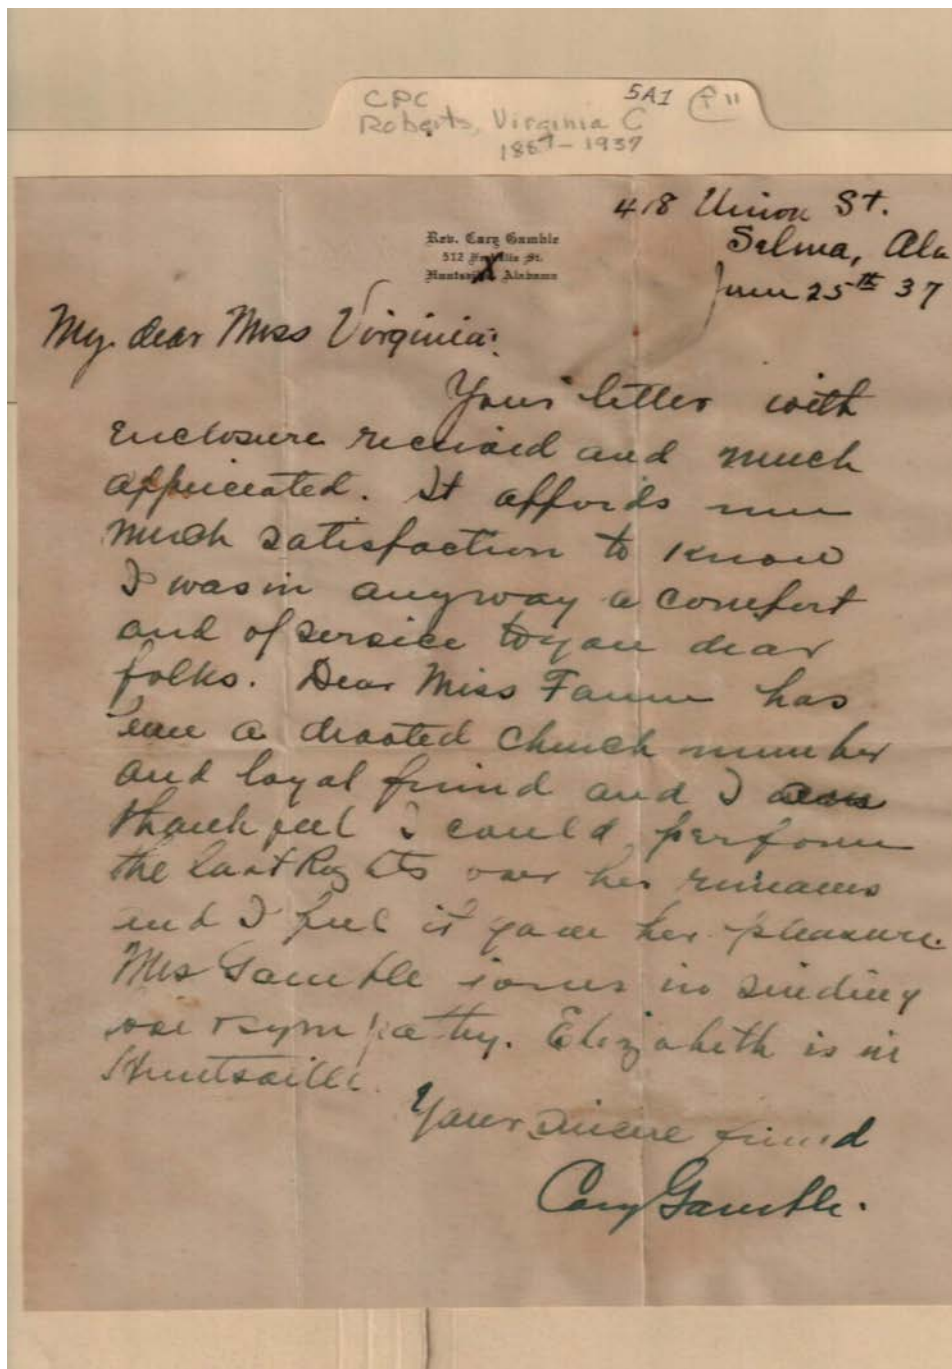 CPC 5A1
Roberts, Virginia C
1887-1937
418 Union St.
Selma, Ala
June 25th 37
Rev. Cary Gamble
512 St.
Huntsville Alabama
My dear Miss Virginia:
Your letter with
enclosure received and much
appreciated. It affords me
much satisfaction to know
I was in anyway a comfort
and of service to you dear
folks. Dear Miss Fannie has
been a devoted church member
and loyal friend and I am
thankful I could perform
the last Rights over her remains
and I feel it gave her pleasure.
Mrs Gamble joins in sending
love & sympathy. Elizabeth is in
Huntsville.
Your sincere friend
Cary Gamble.